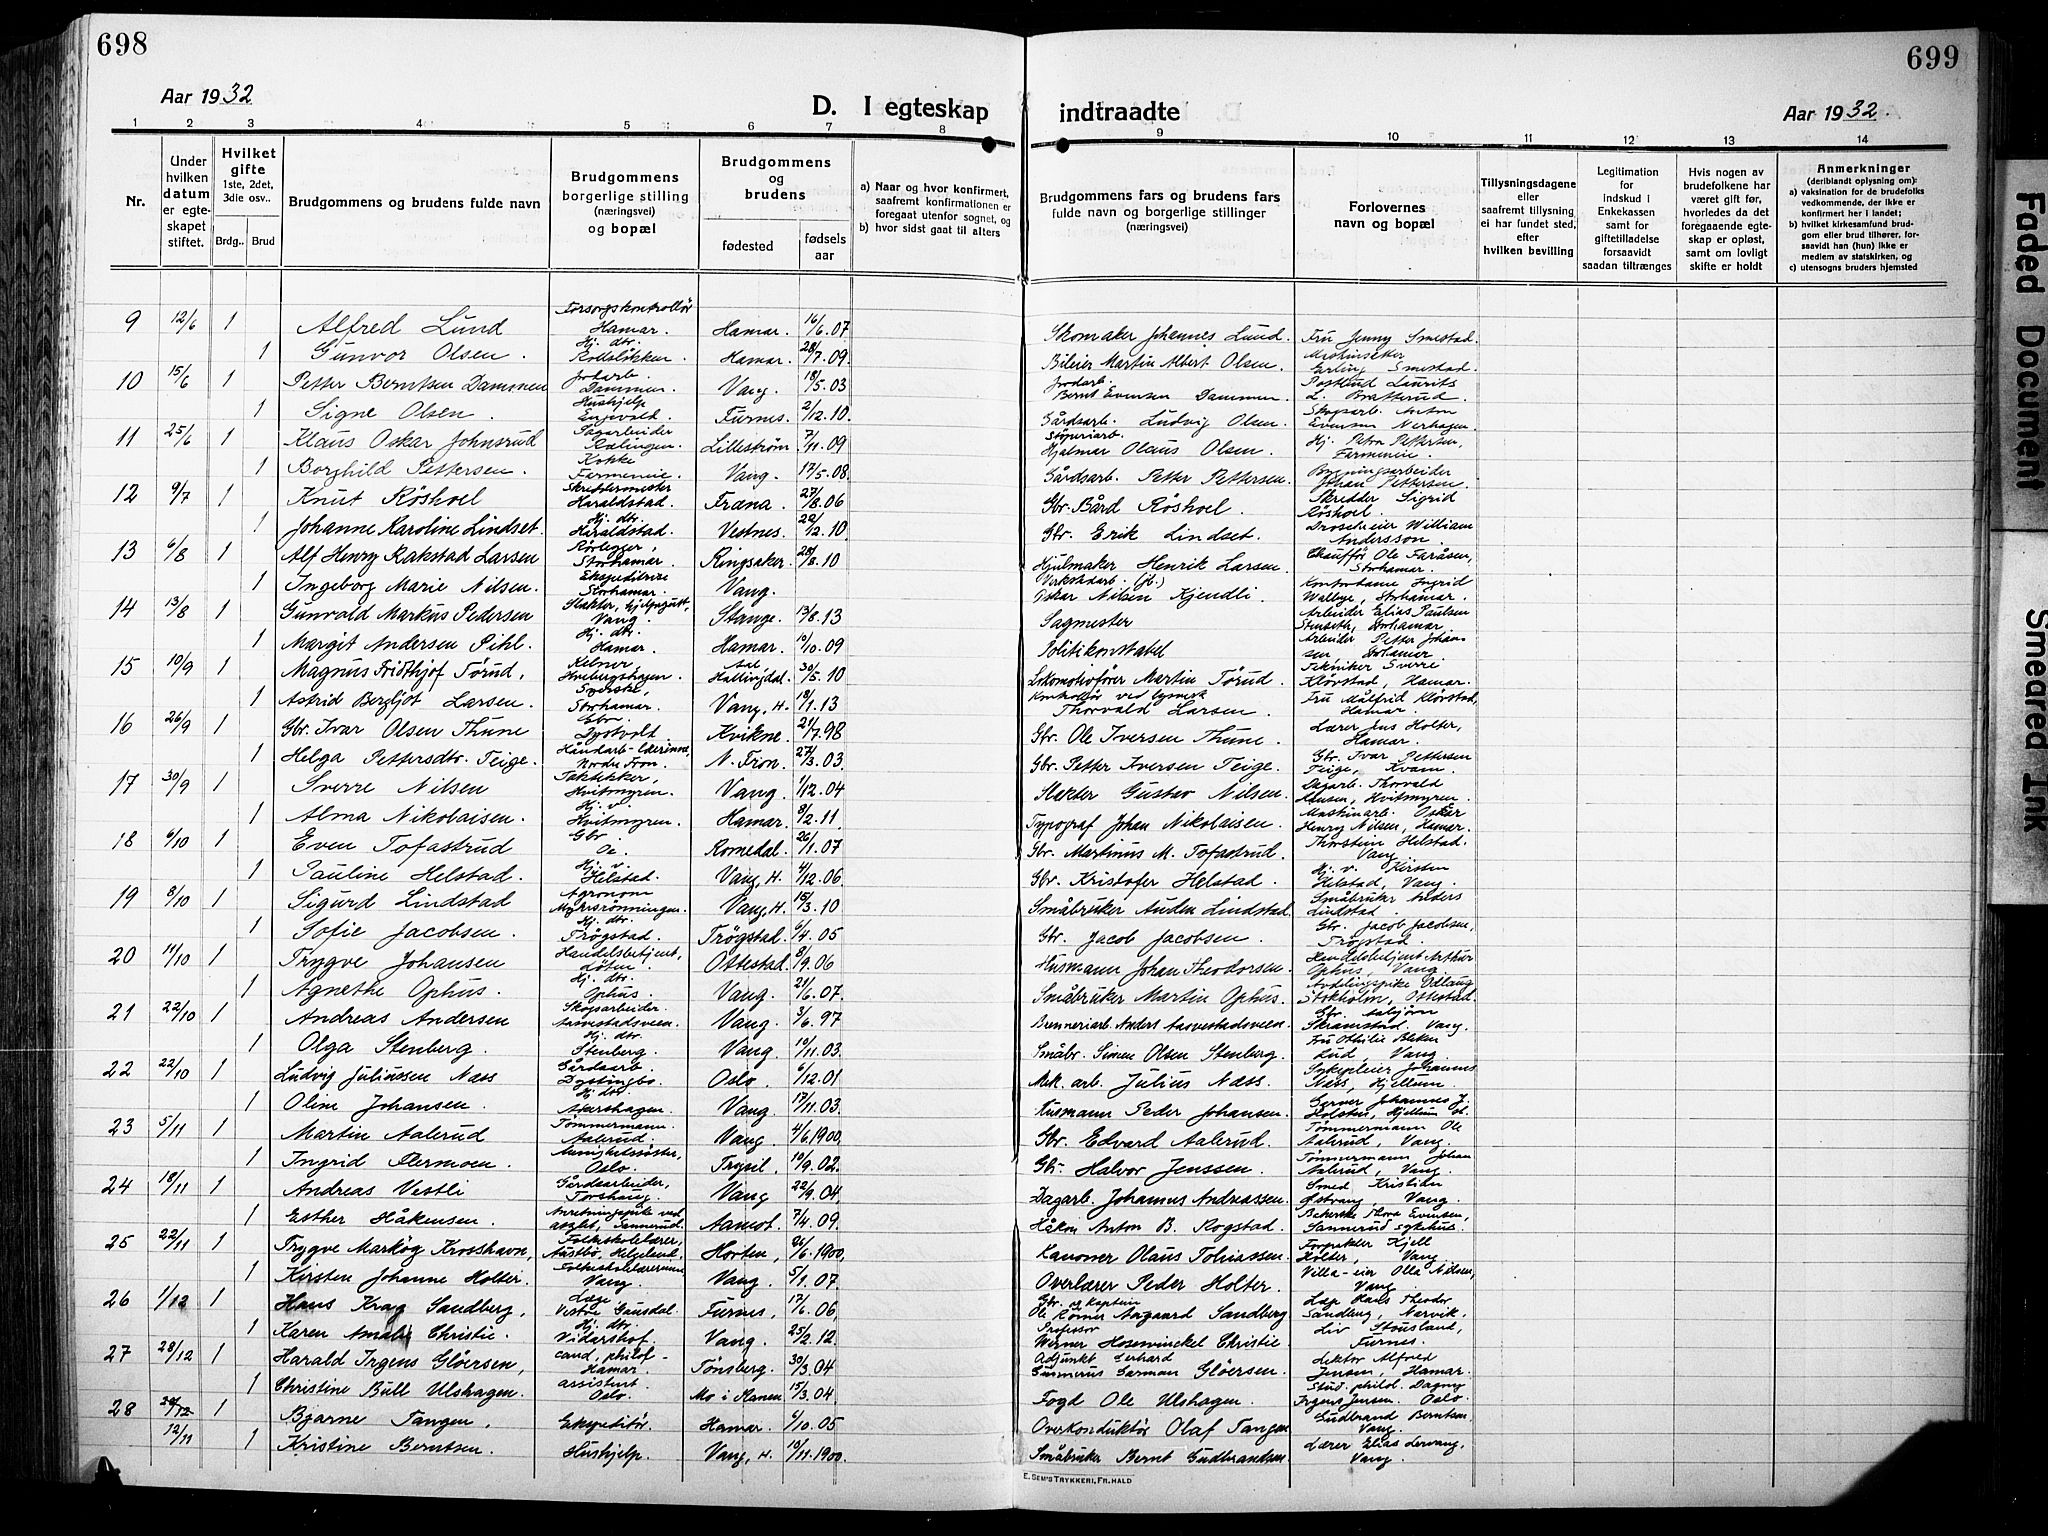 698
699
Aar 1932
D. I egteskap
indtraadte
Aar 1932.
1 2 3 4 5 6 7 8 9 10 11 12 13 14
Nr.
Under hvilken datum er egteskapet stiftet.
Hvilket gifte 1ste, 2det, 3die osv..
Brdg.. Brud
Brudgommens og brudens fulde navn
Brudgommens borgerlige stilling (næringsvei) og bopæl
Brudgommens og brudens
fødested
fødsels aar
a) Naar og hvor konfirmert, saafremt konfirmationen er foregaat utenfor sognet, og
b) hvor sidst gaat til alters
Brudgommens fars og brudens fars fulde navn og borgerlige stillinger (næringsvei)
Forlovernes navn og bopæl
Tillysningsdagene eller saafremt tillysning ei har fundet sted, efter hvilken bevilling
Legitimation for Indskud i Enkekassen samt for giftetilladelse forsaavidt saadan tiltrænges
Hvis nogen av brudefolkene har været gift før, hvorledes da det foregaaende egteskap er opløst, samt om lovligt skifte er holdt
Anmerkninger (deriblandt oplysning om): a) vaksination for de brudefolks vedkommende, der ikke er konfirmert her i landet; b) hvilket kirkesamfund brudgom eller brud tilhører, forsaavidt han (hun) ikke er medlem av statskirken, og c) utensogns bruders hjemsted
9 12/6 1 Alfred Lund Forsorgskontrollør Hamar. Hamar. 16/6.07 Skomaker Johannes Lund. Fru Jenny Smestad.
1 Gunvor Olsen. Hj. dtr. Hamar. 28/7.09 Bileier Martin Albert Olsen. Erling Smestad.
10 15/6 1 Petter Berntsen Dammen Jordarb. Dammen. Vang. 18/5.03 Jordarb. Bernt Evensen Dammen Postbud Laurits L. Bratterud.
1 Signe Olsen. Hushjelp Furnes. 2/12.10 Gårdsarb. Ludvig Olsen. Skogsarb. Anton Evensen Nerhagen.
11 25/6 1 Klaus Oskar Johnsrud Sagarbeider Rælingen. Lillestrøm 7/11.09 Støperiarb. Hjalmar Olaus Olsen. Hj. Petra Pettersen,
1 Borghild Pettersen. Kokke Vang. 17/5.08 Gårdsarb. Petter Pettersen. Johan Pettersen.
12 9/7 1 Knut Røshoel Skreddermester Haraldstad. Fræna. 27/8.06 Gbr. Bård Røshoel. Skredder Sigrid Røshoel.
1 Johanne Karoline Lindset. Hj. dtr. Haraldstad. Vestnes. 22/12.10 Gbr. Erik Lindset. Droscheeier William Andersson.
13 6/8 1 Alf Henry Rakstad Larsen Rørlegger, Storhamar. Ringsaker. 28/8.10 Hjulmaker Henrik Larsen. Chauffør Ole Faråsen, Storhamar.
1 Ingeborg Marie Nilsen. Ekspeditrise Storhamar. Vang. Verkstedarb. (jb.) Oskar Nilsen Kjendli. Kontordame Ingrid Walbye, Storhamar.
14 13/8 1 Gunvald Markus Pedersen Slakter, hjelpegutt, Vang. Stange. 13/8.13 Sagmester Arbeider Elias Paulsen Stenseth, Storhamar
1 Margit Andersen Pihl. Hj. dtr. Hamar. Hamar. 10/10.09 Politikonstabel Arbeider Petter Johansen, Storhamar
15 10/9 1 Magnus Fridthjof Tørud, Kelner, Hvebergshagen. Aal Hallingdal. 30/5.10 Lokomotivfører Martin Tørud. Tekniker Sverre Klørstad, Hamar.
1 Astrid Bergljot Larsen. Syerske, Storhamar. Vang, H. 18/1.13 Kontrollør ved lysverk Thorvald Larsen. Fru Målfrid Klørstad, Hamar.
16 26/9 1 Gbr. Ivar Olsen Thune Gbr. Dystvolt Kvikne. 21/7.98 Gbr. Ole Iversen Thune. Lærer Jens Holter, Hamar.
1 Helga Pettersdtr. Teige. Håndarb.-lærerinne, Nordre Fron. N. Fron. 27/3.03 Gbr. Petter Iversen Teige. Gbr. Ivar Pettersen Teige, Kvam.
17 30/9 1 Sverre Nilsen Taktekker, Hvitmyren. Vang. 1/12.04 Slakter Gustav Nilsen. Dagarb. Thorvald Hansen, Hvitmyren.
1 Alma Nikolaisen. Hj. v. Hvitmyren. Hamar. 8/2.11. Typograf Johan Nikolaisen. Maskinarb. Oskar Henry Nilsen, Hamar.
18 6/10 1 Even Tofastrud Gbr. Romedal. 26/1.07 Gbr. Martinus M. Tofastrud. Thorstein Helstad. Vang
1 Pauline Helstad. Hj. v. Helstad. Vang, H. 4/12.06. Gbr. Kristofer Helstad. Hj. v. Kirsten Helstad, Vang.
19 8/10 1 Sigurd Lindstad Agronom Vang, H. 15/3.10 Småbruker Auden Lindstad. Småbruker Lindstad.
1 Sofie Jacobsen. Hj. dtr. Trøgstad. Trøgstad. 6/4.05 Gbr. Jacob Jacobsen. Gbr. Jacob Jacobsen, Trøgstad.
20 11/10 1 Trygve Johansen Handelsbetjent, Løten. Ottestad. 8/9.06 Husmann Johan Theodorsen. Handelsbetjent Arthur Ophus, Vang.
1 Agnethe Ophus. Hj. dtr. Ophus. Vang. 21/6.07. Småbruker Martin Ophus. Avdelingspike Odlaug Stokholm, Ottestad.
21 22/10 1 Andreas Andersen Skogsarbeider. Aasvestadsveen. Vang. 3/6.97 Brenneriarb. Anders Aasvestadsveen. Gbr. Asbjørn Skramstad. Vang.
1 Olga Stenberg. Hj. dtr. Stenberg. Vang. 10/11.03. Småbr. Simen Olsen Stenberg. Fru Othilie Bleken Lud, Vang.
22 22/10 1 Ludvig Juliussen Næss Gårdsarb. Dystingbo. Oslo. 6/12.01 Msk. arb. Julius Næss. Sykepleier Johannes Næss, Hjellum.
1 Oline Johansen. Hj. dtr. Akershagen. Vang. 17/11.03. Husmann Peder Johansen. Garver Johannes J. Holstad, Hjellum st.
23 5/11 1 Martin Aalerud Tømmermann. Aalerud. Vang. 4/6.1900. Gbr. Edvard Aalerud. Tømmermann Ole Aalerud, Vang.
1 Ingrid Flermoen. Menighetssøster, Oslo. Trysil. 10/9.02. Gbr. Halvor Jenssen. Tømmermann Johan Aalerud, Vang.
24 18/11 1 Andreas Vestli Gårdsarbeider, Torshaug. Vang 22/9.04. Dagarb. Johannes Andreassen. Smed Kristian Østvang, Vang.
1 Esther Håkensen. Anretningspike ved asylet, Sannerud. Aamot. 7/4.09. Håkon Anton B. Rogstad. Bokerske Thora Evensen, Sannerud sykehus.
25 22/11 1 Trygve Markøg Krosshavn, Folkeskolelærer, Austbø, Helgeland. Horten, 26/6.1900, Kanoner Olaus Tobiassen. Forpakter Kjell Holter, Vang.
1 Kirsten Johanne Holter. Folkeskolelærerinne Vang. Vang. 5/1.07. Overlærer Peder Holter. Villa-eier Olla Nilsen, Vang
26 1/12 1 Hans Krag Sandberg, Læge, Vestre Gausdal. Furnes, 17/6.06, Gbr. og kaptein Ole Rømer Aagaard Sandberg Læge Hans Theodor Sandberg, Narvik.
1 Karen Amalie Christie. Hj. dtr. Vidarshof. Vang. 25/2.12. Professor Werner Hosewinckel Christie. Liv Stousland, Furnes.
27 28/12 1 Harald Irgens Gløersen, cand. philol- Hamar. Tønsberg. 30/3.04 Adjunkt Gerhard Gunnerus Sarman Gløersen. Lektor Alfred Jensen, Hamar.
1 Christine Bull Ulshagen. assistent. Oslo. Mo i Ranen 15/3.04 Fogd Ole Ulshagen. Stud. philol. Dagny Irgens Jensen. Oslo.
28 12/11 1 Bjarne Tangen, Ekspeditør. Hamar. 6/10.05 Overkonduktør Olaf Tangen Gudbrand Berntsen, Vang.
1 Kristine Berntsen. Hushjelp. Vang, H. 10/11.1900. Småbruker Bernt Gudbrandsen. Lærer Elias Lervang, Vang.
E. SEM'S TRYKKERI, FR.HALD
Faded Document
Smeared Ink